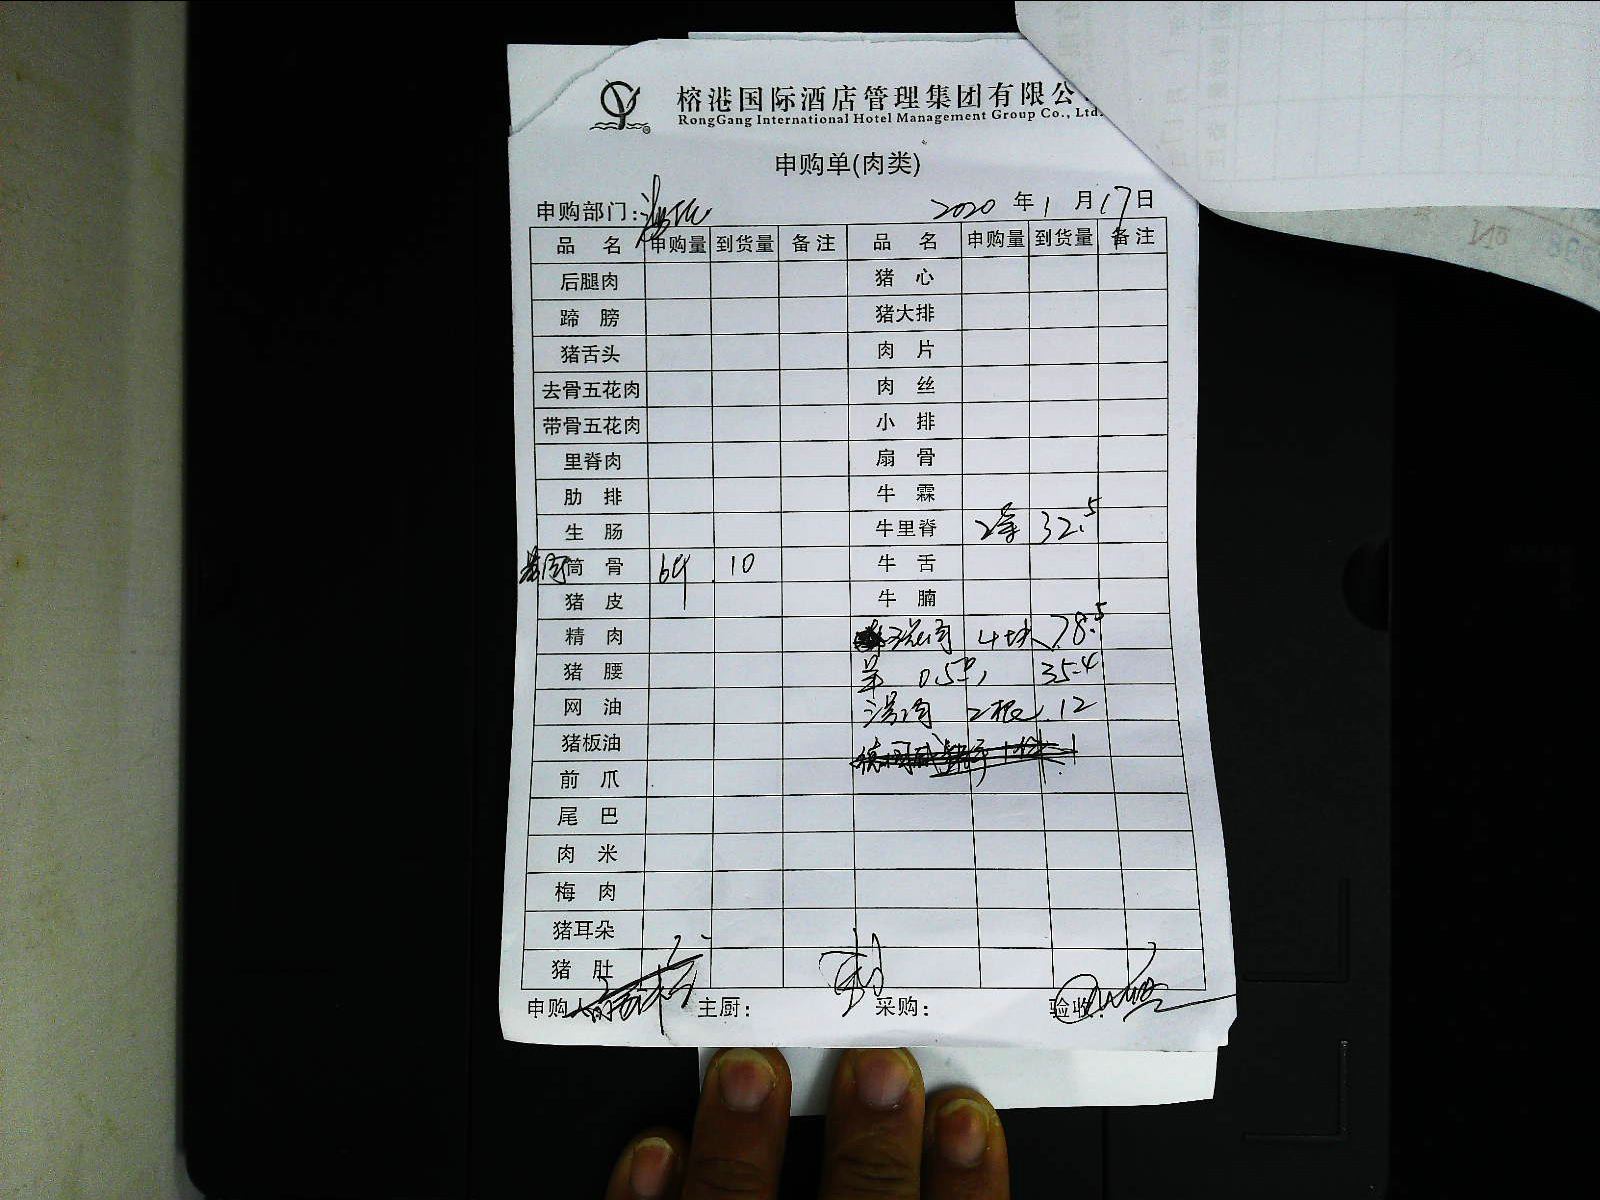 榕港国际酒店管理集团有限公
RongGang International Hotel Management Group Co., Ltd.
申购单(肉类)
申购部门: 2020 年 1 月 17 日
品 名 申购量 到货量 备注 品 名 申购量 到货量 备注
后腿肉 猪 心
蹄 膀 猪大排
猪舌头 肉 片
去骨五花肉 肉 丝
带骨五花肉 小 排
里脊肉 扇 骨
肋 排 牛 霖
生 肠 牛里脊 2条 32.5
筒 骨 6斤 10 牛 舌
猪 皮 牛 腩
精 肉 4块 78.5
猪 腰 羊 0.5只 35.4
网 油 汤肉 2根 12
猪板油
前 爪
尾 巴
肉 米
梅 肉
猪耳朵
猪 肚
申购人 主厨: 采购: 验收:
No